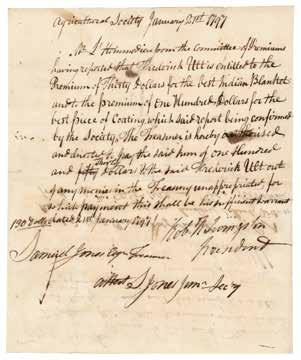 Agricultural Society January 21st 1797
Mr L'Hommedieu from the Committee of Premiums
having reported that Frederick Utt is entitled to the
Premium of Thirty Dollars for the best Indian Blanket
and to the premium of One Hundred Dollars for the
best piece of Coating, which said report being confirmed
by the Society, The Treasurer is hereby authorised
and directed to pay the said sum of One Hundred
and Thirty Dollars to the said Frederick Utt out
of any monies in the Treasury unappropriated for
which payment this shall be his sufficient warrant
130 Dollars dated 21st January 1797
Rob R Livingston
President
Samuel Jones Esqr Treasurer
attest S Jones Junr Secry